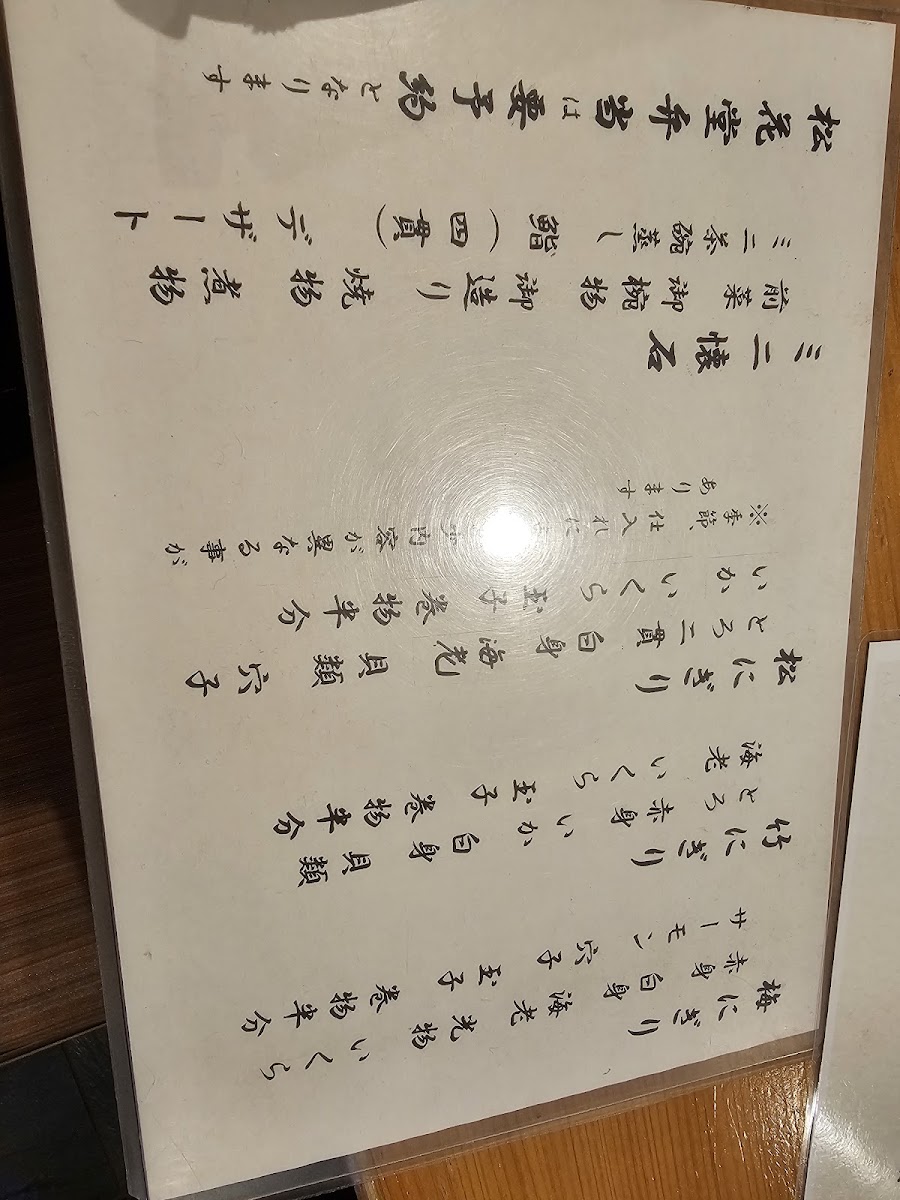 梅にぎり
赤身 白身 海老 光物 いくら
サーモン 穴子 玉子 巻物半分
竹にぎり
とろ 赤身 いか 白身 貝類
海老 いくら 玉子 巻物半分
松にぎり
とろ二貫 白身 海老 貝類 穴子
いか いくら 玉子 巻物半分
※季節、仕入れに 内容が異なる事が
あります
ミニ懐石
前菜 御椀物 御造り 焼物 煮物
ミニ茶碗蒸し 鮨(四貫) デザート
松花堂弁当は要予約となります